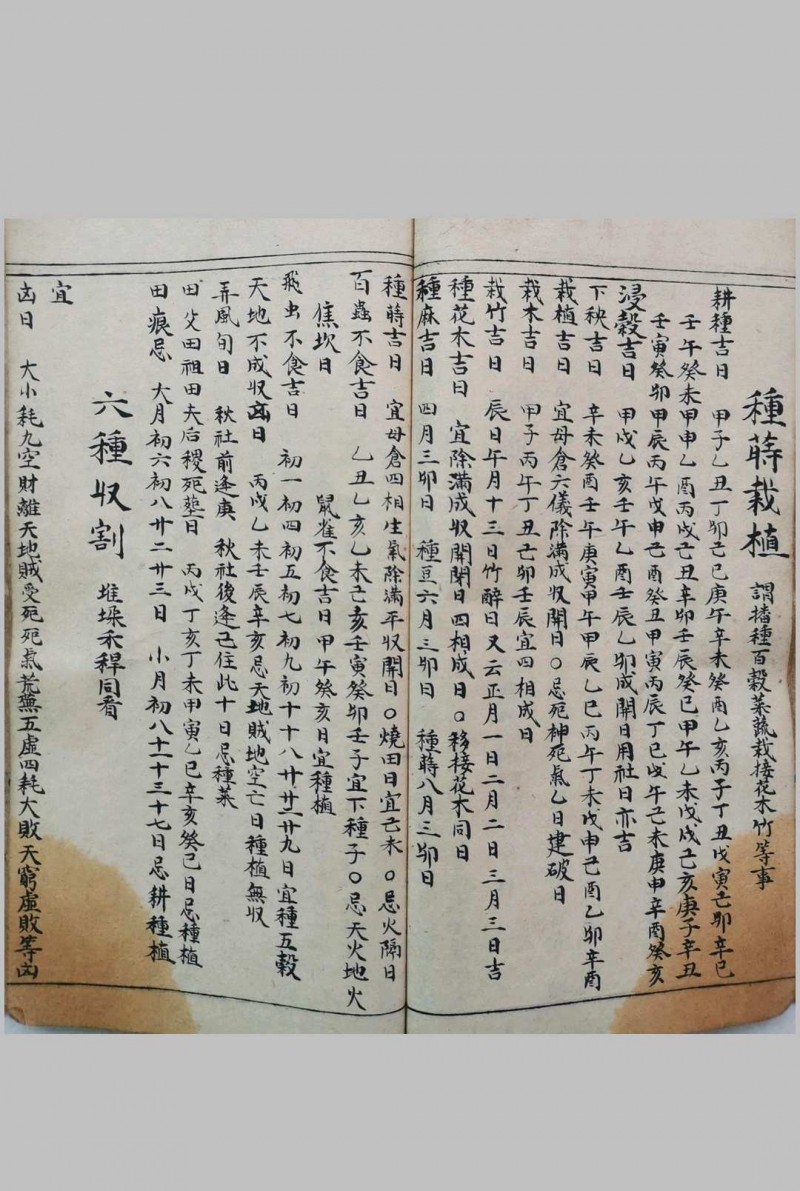 種蒔栽植 謂播種百穀菜蔬栽接花木竹等事
耕種吉日 甲子乙丑丁卯己巳庚午辛未癸酉乙亥丙子丁丑戊寅己卯辛巳
壬午癸未甲申乙酉丙戌己丑辛卯壬辰癸巳甲午乙未戊戌己亥庚子辛丑
壬寅癸卯甲辰丙午戊申己酉癸丑甲寅丙辰丁巳戊午己未庚申辛酉癸亥
浸穀吉日 甲戌乙亥壬午乙酉壬辰乙卯成開日用社日亦吉
下秧吉日 辛未癸酉壬午庚寅甲午甲辰乙巳丙午丁未戊申己酉乙卯辛酉
栽植吉日 宜母倉六儀除滿成収開日○忌死神死氣乙日建破日
栽木吉日 甲子丙午丁丑己卯壬辰宜四相成日
栽竹吉日 辰日午月十三日竹醉日又云正月一日二月二日三月三日吉
種花木吉日 宜除滿成収開閉日四相成日○移接花木同日
種麻吉日 四月三卯日 種豆六月三卯日 種蒔八月三卯日
種蒔吉日 宜母倉四相生氣除滿平収開日○燒田日宜己未○忌火隔日
百蟲不食吉日 乙丑乙亥乙未己亥壬寅癸卯壬子宜下種子○忌天火地火
焦坎日 鼠雀不食吉日甲午癸亥日宜種植
飛虫不食吉日 初一初四初五初七初九初十十八廿廿一廿九日宜種五穀
天地不成収凶日 丙戌乙未壬辰辛亥忌天地賊地空亡日種植無収
弄風旬日 秋社前逢庚 秋社後逢己住此十日忌種菜
田父田祖田夫后稷死塟日 丙戌丁亥丁未甲寅乙巳辛亥癸巳日忌種植
田痕忌 大月初六初八廿二廿三日 小月初八十一十三十七日忌耕種植
六種収割 堆垜禾稈同看
宜
凶日 大小耗九空財離天地賊受死死氣荒蕪五虛四耗大敗天窮虛敗等凶